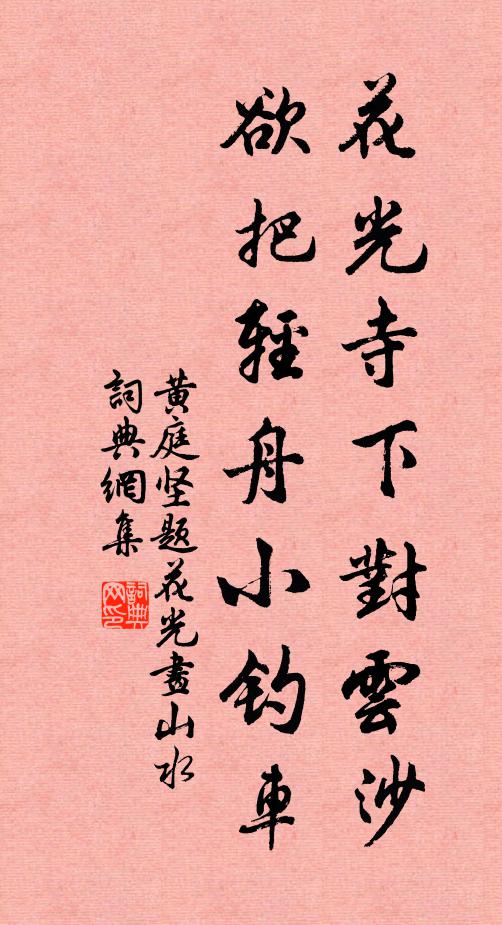 花光寺下對雲沙
欲把輕舟小釣車
黄庭坚题花光畫山水
詞典網集
詞典网印